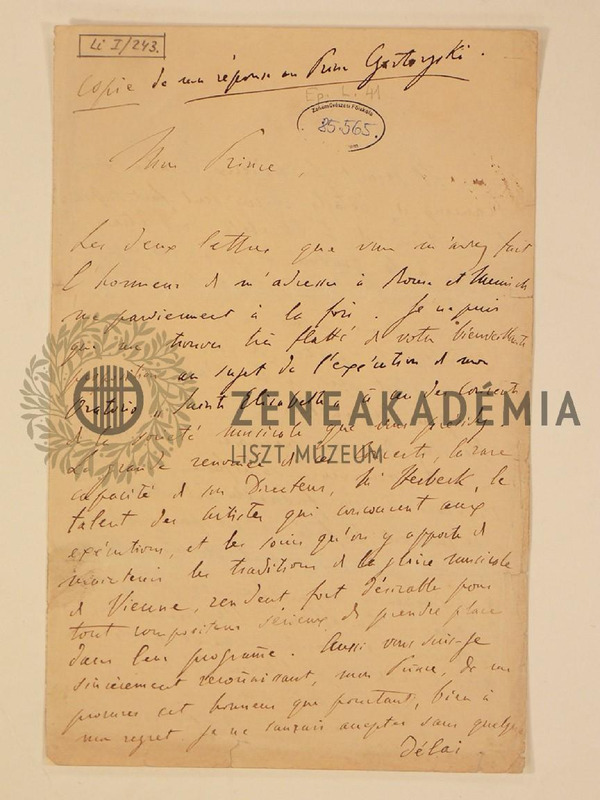 Li I/243.
Copie de ma réponse au Prince Czartoryski.
Ep. L. 41
Zeneművészeti Főiskola
25.565.
Mon Prince,
Les deux lettres que vous m'avez fait
l'honneur de m'adresser à Rome et Munich
me parviennent à la fois. Je ne puis
que me trouver très flatté de votre bienveillante
au sujet de l'exécution de mon
Oratorio „Sainte Elisabeth" à un des concerts
de la société musicale que vous présidez.
La grande renommée de ces Concerts, la rare
capacité de son Directeur, Mr Herbeck, le
talent des artistes qui concourent aux
exécutions, et les soins qu'on y apporte de
maintenir les traditions de la gloire musicale
de Vienne, rendent fort désirable pour
tout compositeur sérieux de prendre place
dans leur programe. Aussi vous suis-je
sincèrement reconnaissant, mon Prince, de me
procurer cet honneur que pourtant, bien à
mon regret je ne saurais accepter sans quelque
délai.
ZENEAKADÉMIA
LISZT MÚZEUM